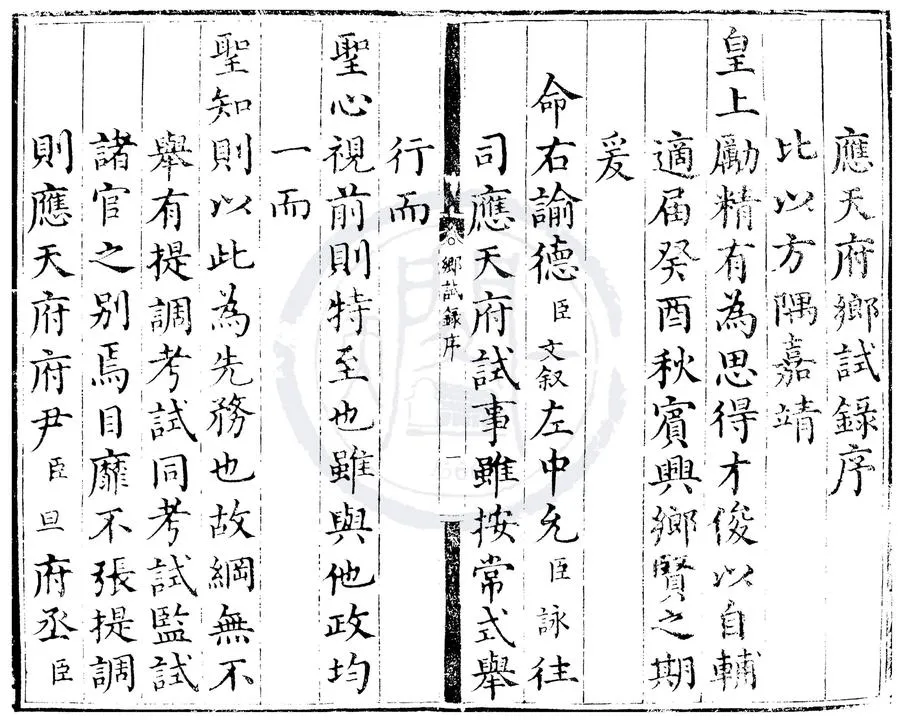 應天府鄉試錄序
比以方隅嘉靖
皇上勵精有為思得才俊以自輔
適届癸酉秋賓興鄉賢之期
爰
命右諭德臣文叙左中允臣詠往
司應天府試事雖按常式舉
行而
聖心視前則特至也雖與他政均
一而
聖知則以此為先務也故綱無不
舉有提調考試同考試監試
諸官之别焉目靡不張提調
則應天府府尹臣旦府丞臣
鄉試錄序
一